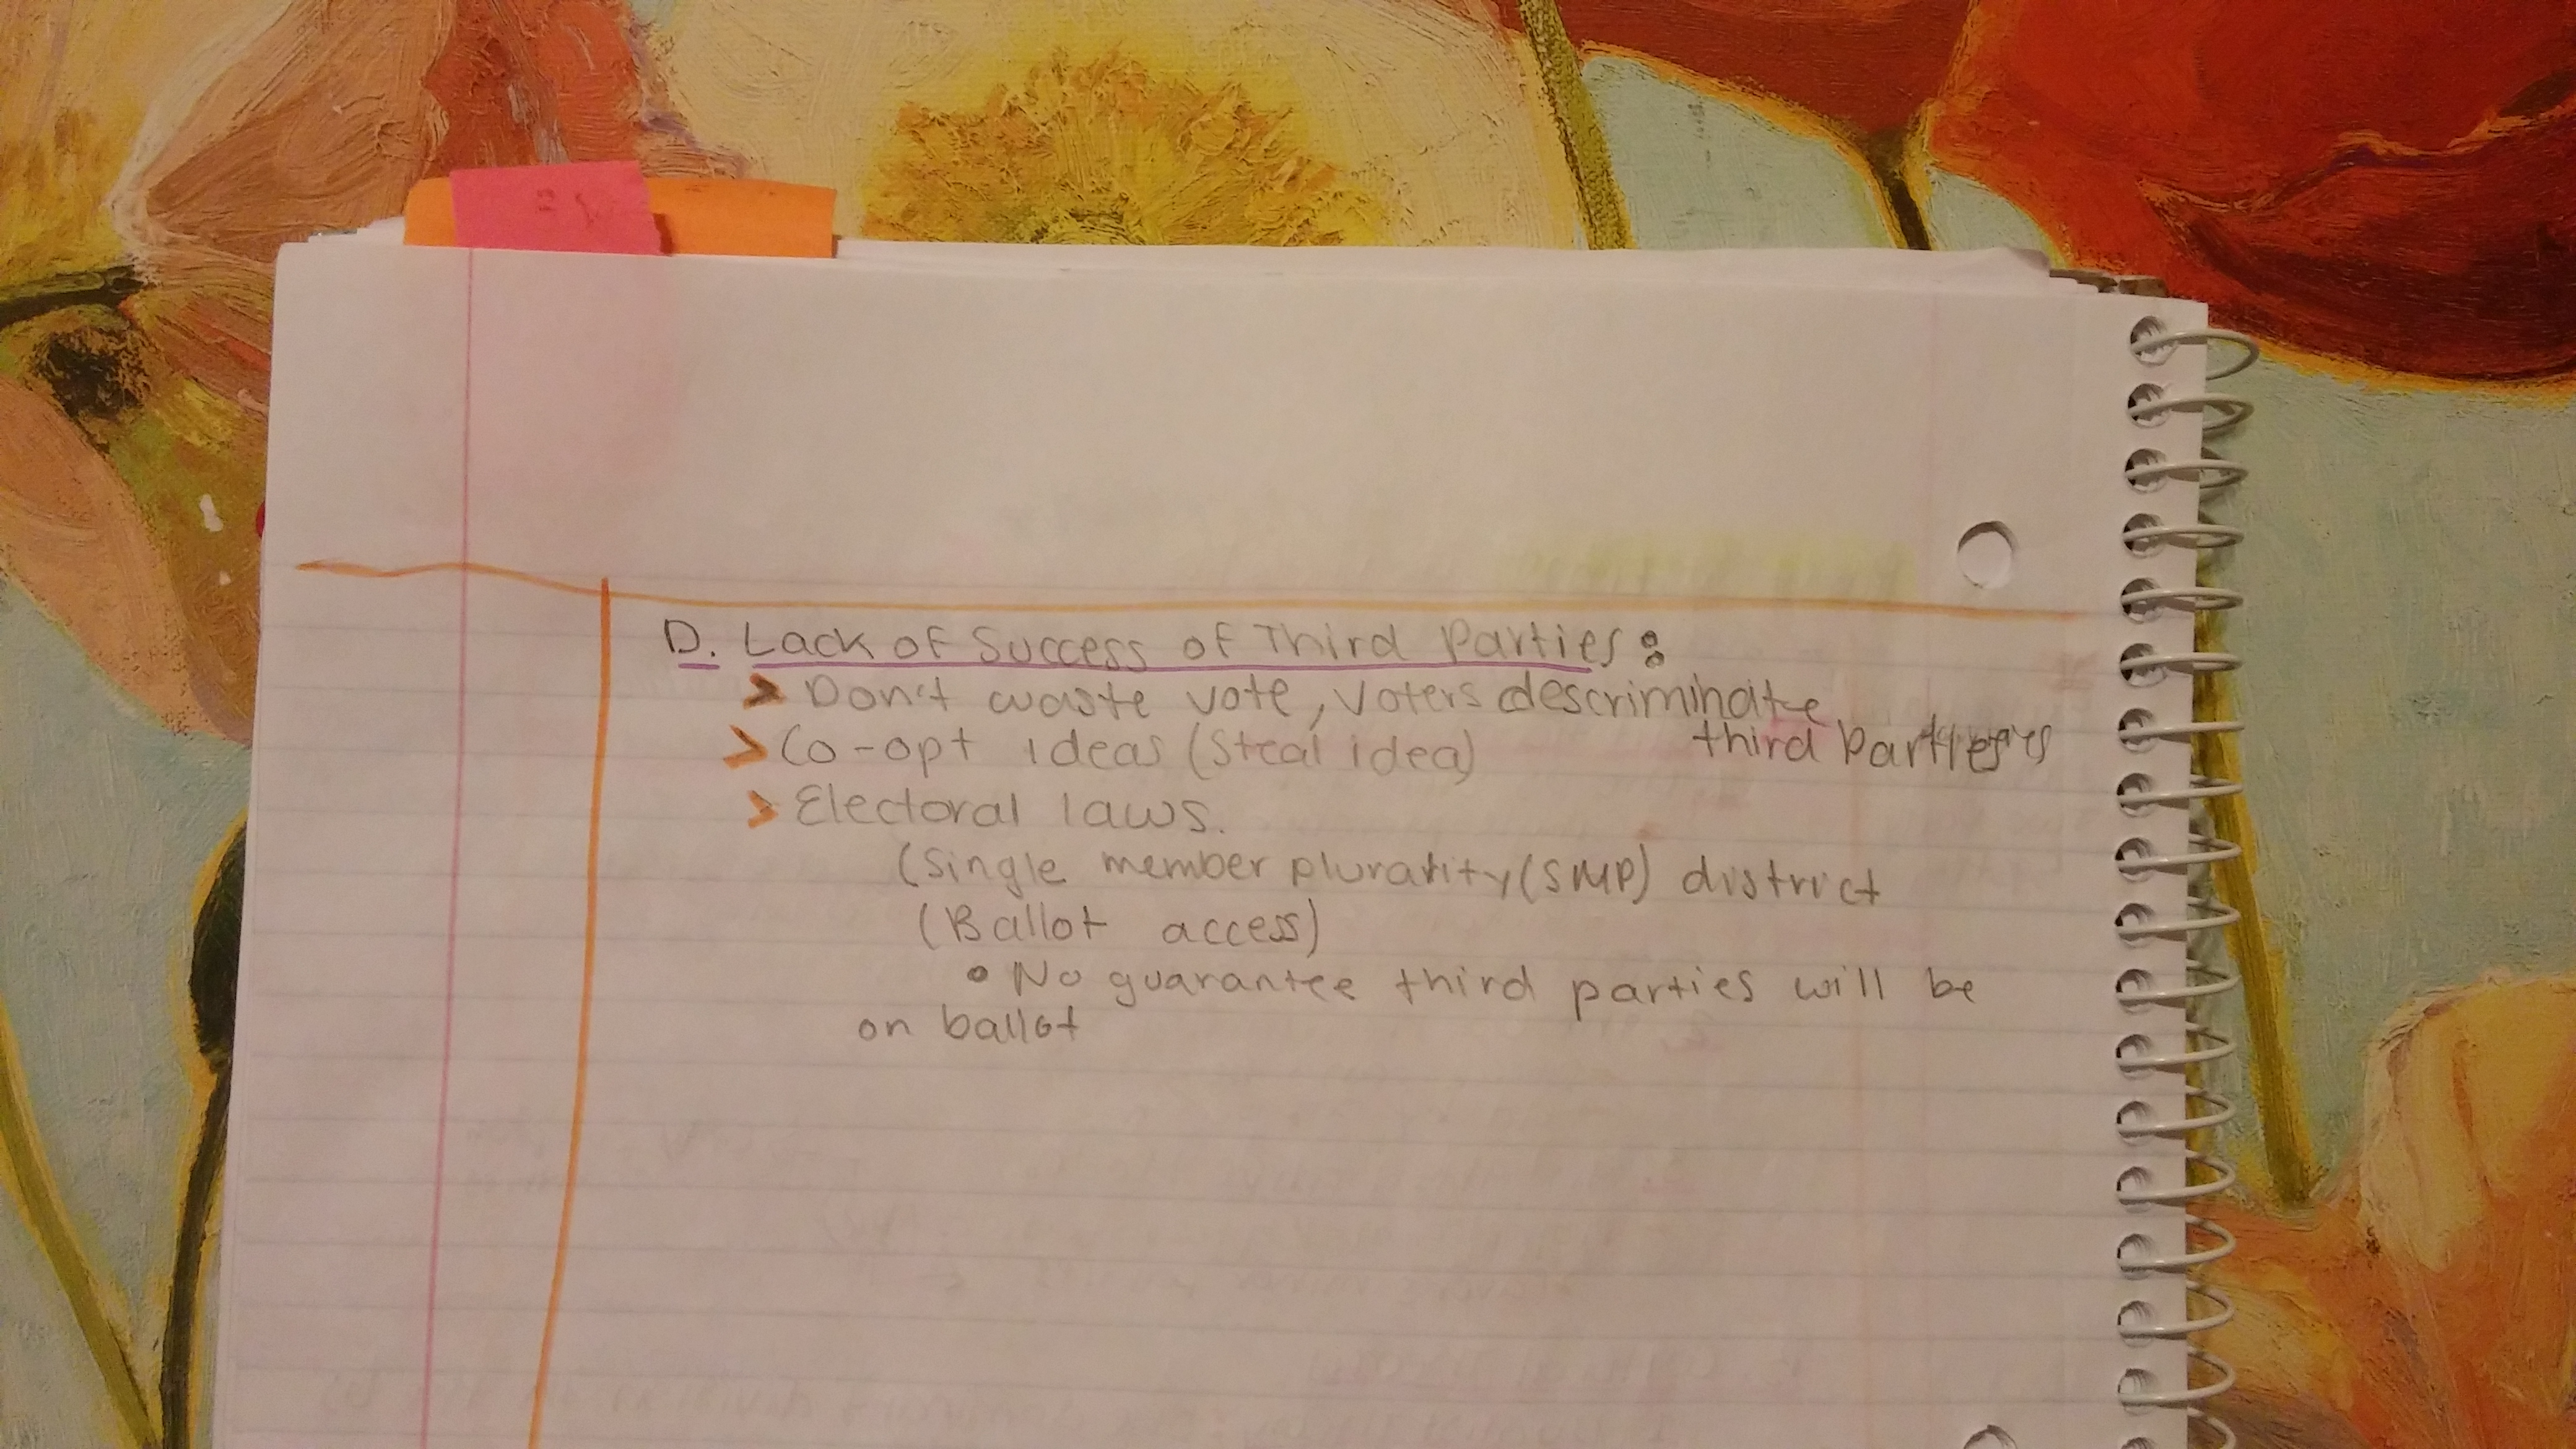 D. Lack of Success of Third Parties:
> Don't waste vote, Voters descriminate
third Parties
> Co-opt ideas (Steal idea)
> Electoral laws.
(Single member plurality (SMP) district
(Ballot access)
• No guarantee third parties will be
on ballot